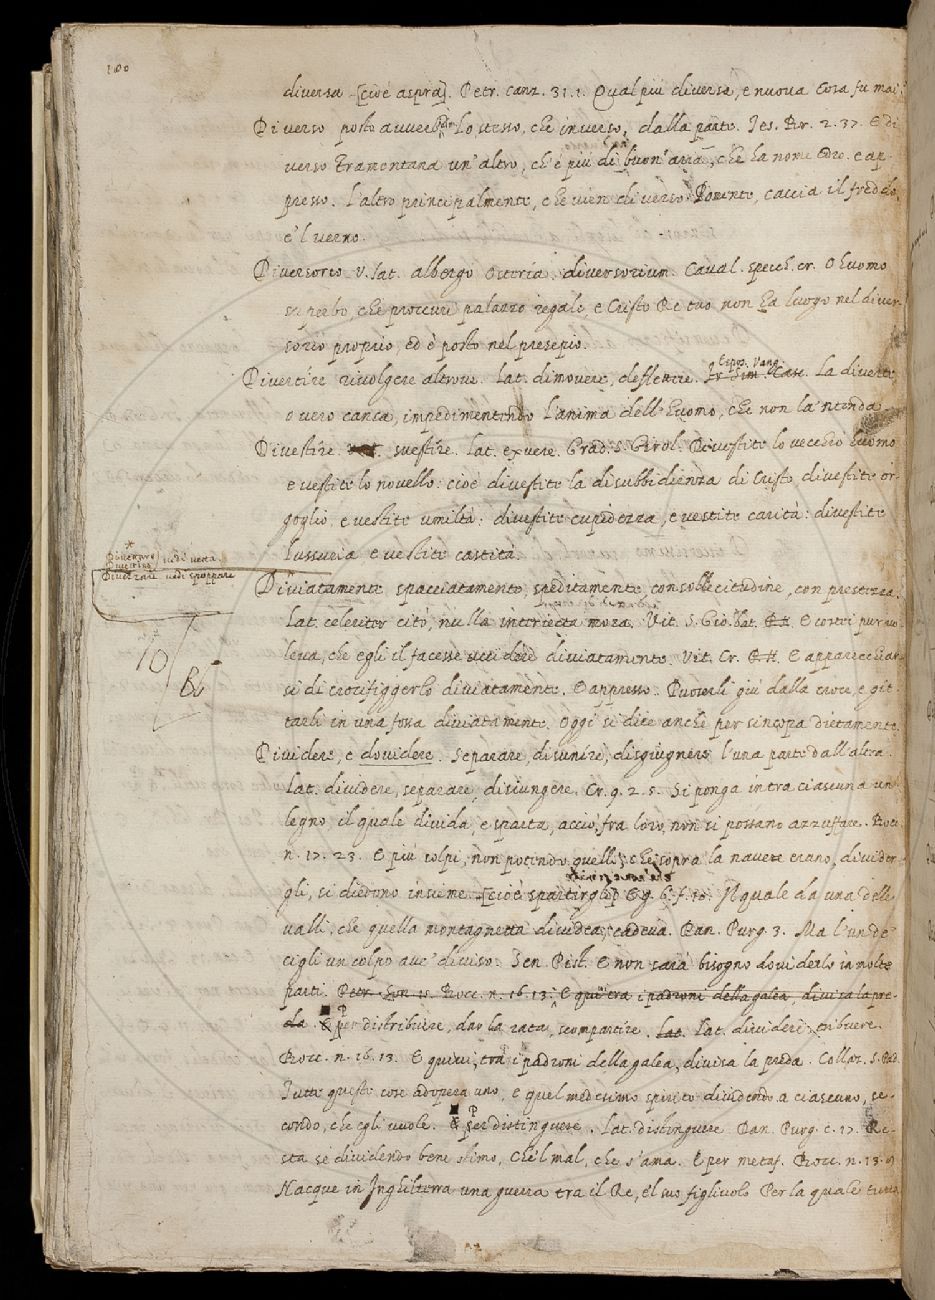 100
diversa [cioè aspra]. Petr. canz. 31.1. Qual più diversa, e nuova Cosa fu mai
Di verso posto avverb. Lo stesso, che inverso, dalla parte. Tes. Br. 2. 37. E di
verso tramontana un'altro, ch'è più di buon'aria, che ha nome Edre. e ap-
presso. L'altro principalmente, che vien di verso Ponente, caccia il freddo,
e 'l verno.
Diversorio V. lat. albergo Osteria. diversorium. Caval. specch. cr. O huomo
superbo, che procuri palazzo regale, e Cristo Re tuo non ha luogo nel diver-
sorio proprio, ed è posto nel presepio.
Espos. Vang.
Divertire rivolgere altrove. Lat. dimovere, deflectere. La diverte,
o vero carica, impedimentendo l'anima dell'huomo, che non la 'ntenda
Divestire. svestire. Lat. exuere. Grad. S. Girol. Divestite lo vecchio huomo
e vestite lo novello: cioè divestite la disubbidienza di Cristo, divestite or-
goglio, e vestite umiltà: divestite cupidezza, e vestite carità: divestite
lussuria e vestite castità.
vedi vetta
vedi spoppare
Diviatamente spacciatamente, speditamente, con sollecitudine, con prestezza.
Lat. celeriter citò, nulla interiecta mora. Vit. S. Gio. bat. E costei pur vo-
leva, che egli il facesse uccidere diviatamente. Vit. Cr. E apparecchiar-
si di crocifiggerlo diviatamente. E appresso. Puoserli giù dalla croce, e git-
tarli in una fossa diviatamente. Oggi si dice anche per sincopa dietamente
10/86
Dividere, e dovidere. Separare, disunire, disgiugnere l'una parte dall'altra.
Lat. dividere, separare, disiungere. Cr. 9. 2. 5. Si ponga intra ciascuna un
legno, il quale divida, e sparta, acciò fra loro, non si possano azzuffare. Bocc.
n. 17. 23. E più colpi, non potendo quelli, che sopra la nave erano, divider-
gli, si diedono insieme [cioè spartirgli] Il quale da una delle
valli, che quella montagnetta dividea, cadeva. Dan. Purg. 3. Ma l'un de'
cigli un colpo ave' diviso. Sen. Pist. E non sarà bisogno doviderlo in molte
parti. Petr. Son. Bocc. n. 16. 13. E quivi tra i padroni della galea, divisa la pre-
da. P per distribuire, dar la rata, scompartire. Lat. Lat. dividere, tribuere.
Bocc. n. 16. 13. E quivi, tra i padroni della galea, divisa la preda. Collaz. S. Pad.
Tutte queste cose adopera uno, e quel medesimo spirito dividendo a ciascuno, se-
condo, che egli vuole. P per distinguere. Lat. distinguere Dan. Purg. c. 17. Re-
sta se dividendo bene stimo, Che'l mal, che s'ama. E per metaf. Bocc. n. 13.
Nacque in Inghilterra una guerra tra il Re, e'l suo figliuolo Per la quale tutta